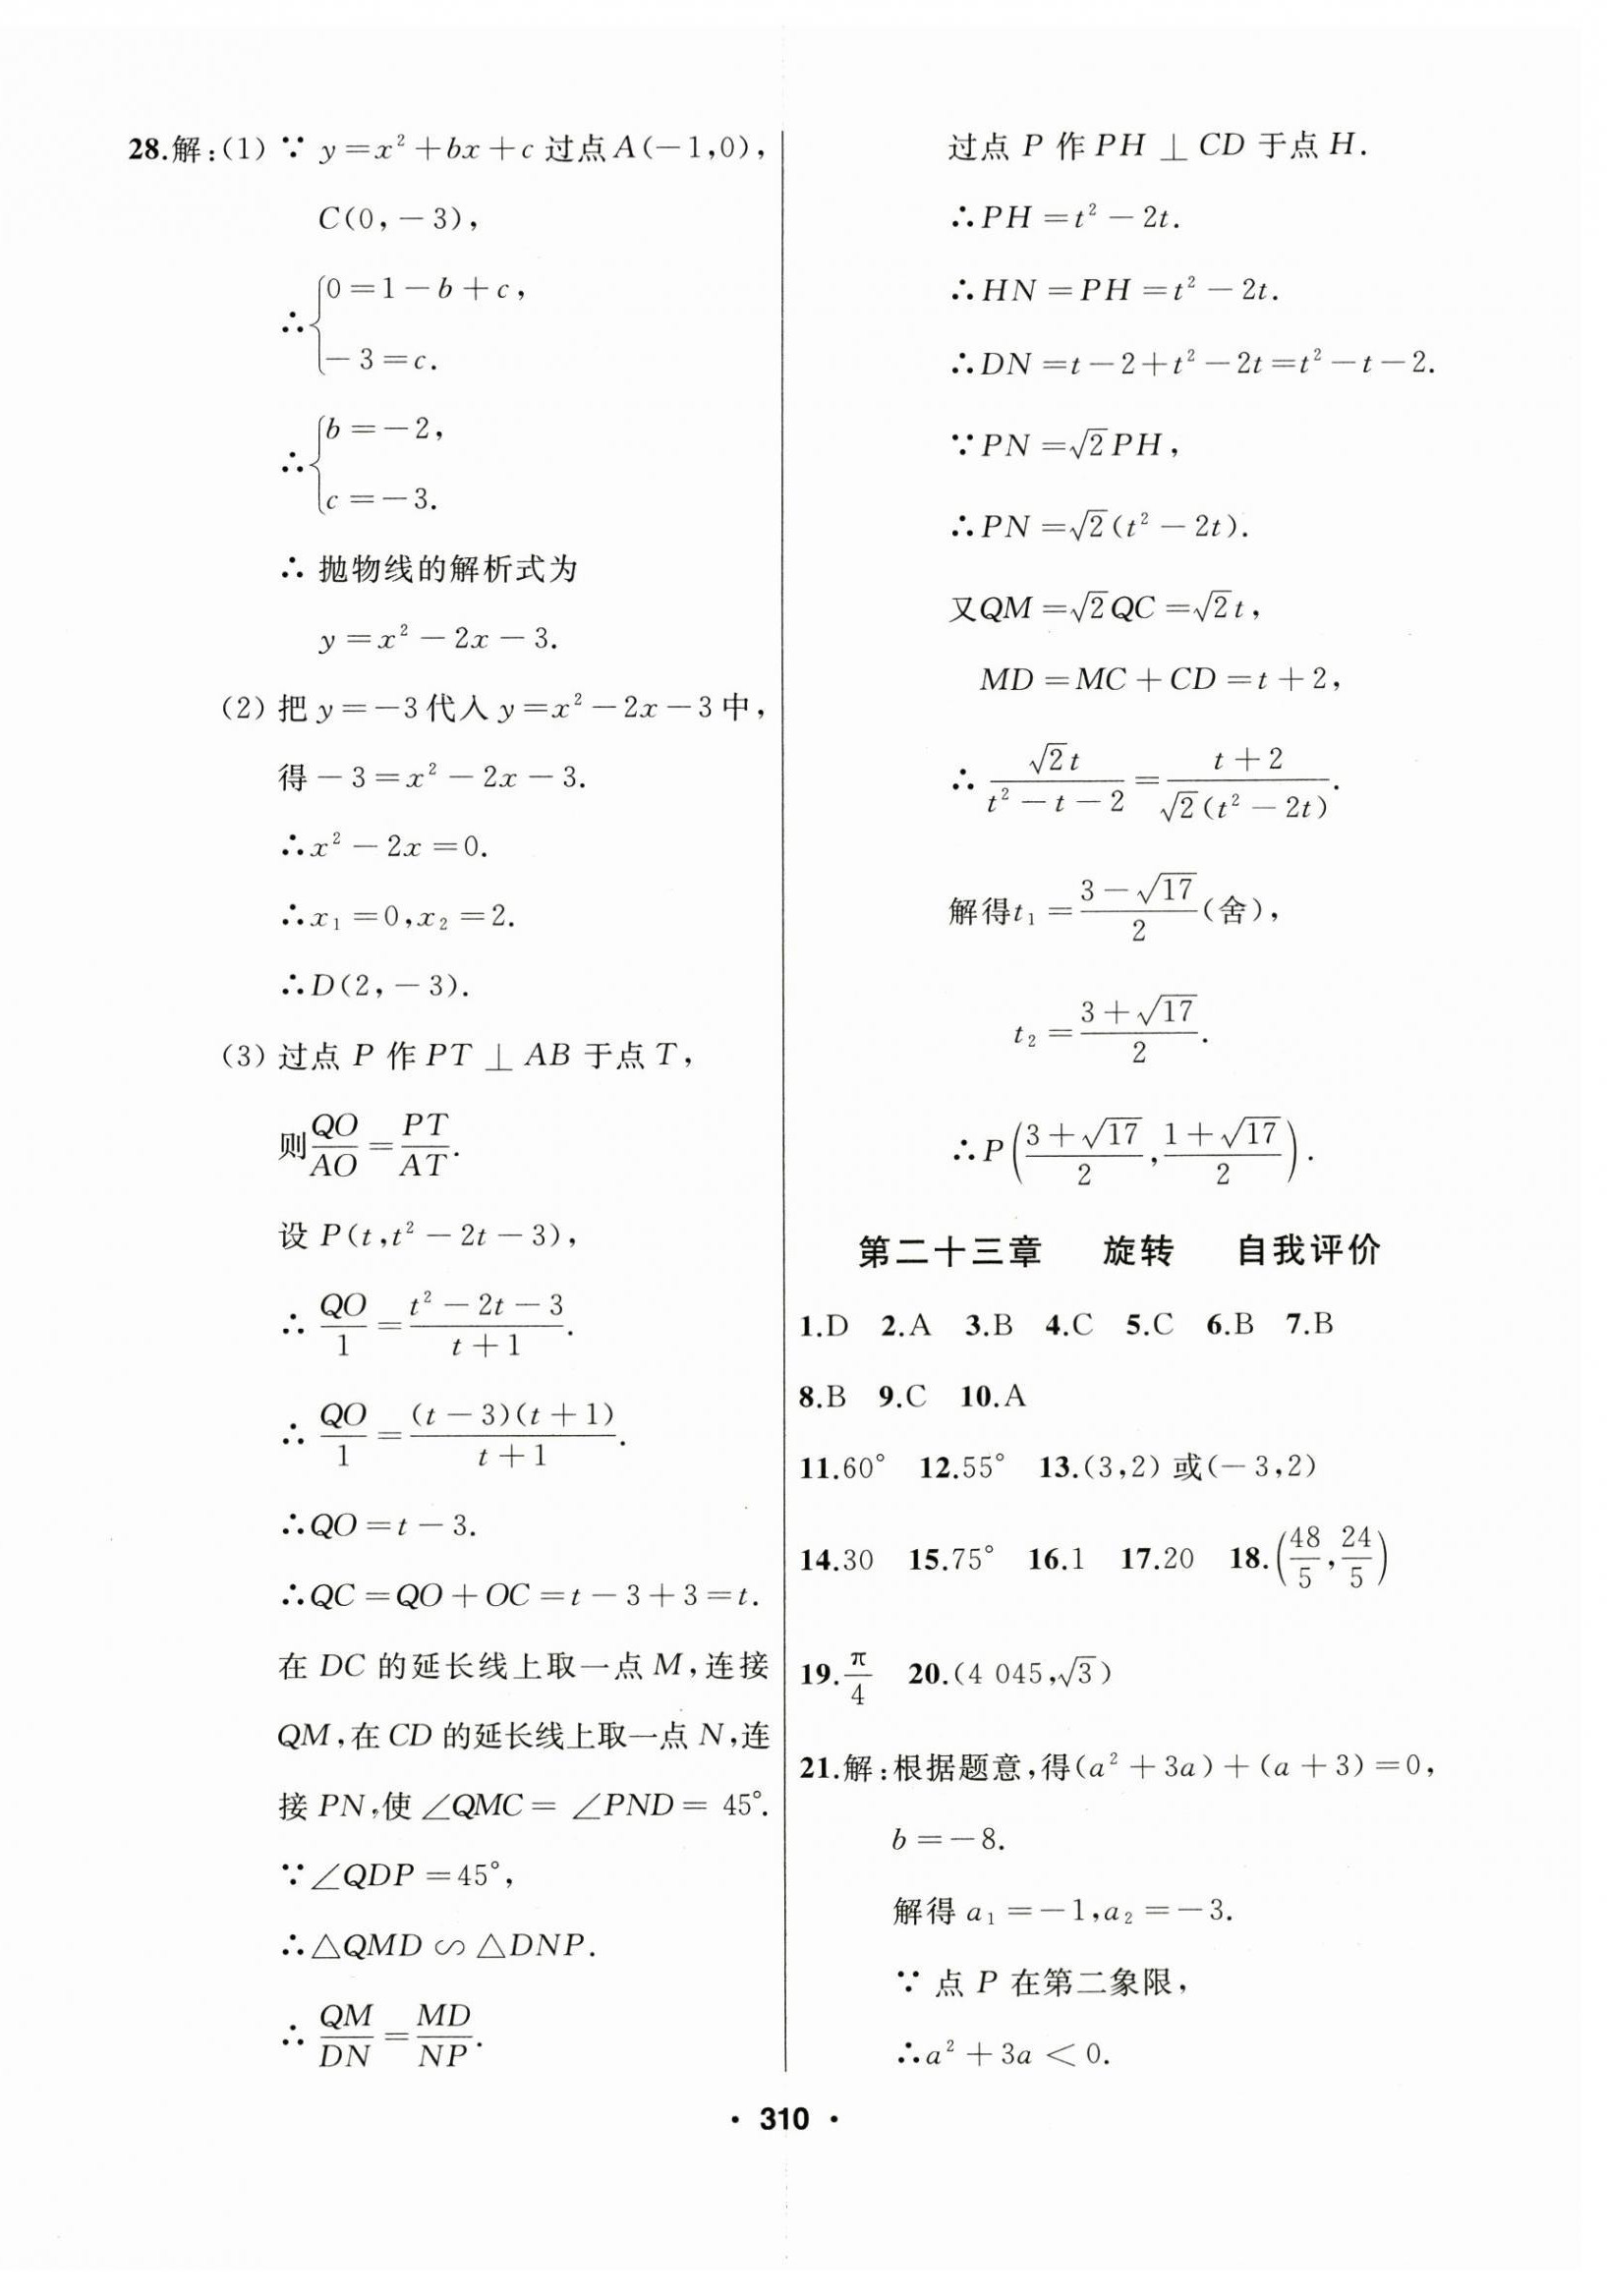 28.解:(1) ∵ y=x²+bx+c 过点A(-1,0),
C(0,-3),
∴{0=1-b+c,
-3=c.
∴{b=-2,
c=-3.
∴ 抛物线的解析式为
y=x²-2x-3.
(2) 把 y=-3代入 y=x²-2x-3中,
得-3=x²-2x-3.
∴x²-2x=0.
∴x₁=0,x₂=2.
∴D(2,-3).
(3) 过点 P 作 PT ⊥ AB 于点 T,
则QO/AO=PT/AT.
设 P(t,t²-2t-3),
∴ QO/1=(t²-2t-3)/(t+1).
∴ QO/1=(t-3)(t+1)/(t+1).
∴QO=t-3.
∴QC=QO+OC=t-3+3=t.
在 DC 的延长线上取一点 M,连接
QM,在 CD 的延长线上取一点 N,连
接 PN,使 ∠QMC= ∠PND= 45°.
∵∠QDP=45°,
∴△QMD ∽ △DNP.
∴ QM/DN=MD/NP.
过点 P 作 PH ⊥ CD 于点 H.
∴PH=t²-2t.
∴HN=PH=t²-2t.
∴DN=t-2+t²-2t=t²-t-2.
∵PN=√2PH,
∴PN=√2(t²-2t).
又QM=√2QC=√2t,
MD=MC+CD=t+2,
∴ √2t/(t²-t-2)=(t+2)/(√2(t²-2t)).
解得t₁=(3-√17)/2(舍),
t₂=(3+√17)/2.
∴P((3+√17)/2,(1+√17)/2).
第二十三章 旋转 自我评价
1.D 2.A 3.B 4.C 5.C 6.B 7.B
8.B 9.C 10.A
11.60° 12.55° 13.(3,2) 或(-3,2)
14.30 15.75° 16.1 17.20 18.(48/5,24/5)
19.π/4 20.(4 045,√3)
21.解:根据题意,得(a²+3a)+(a+3)=0,
b=-8.
解得 a₁=-1,a₂=-3.
∵ 点 P 在第二象限,
∴a²+3a<0.
· 310 ·